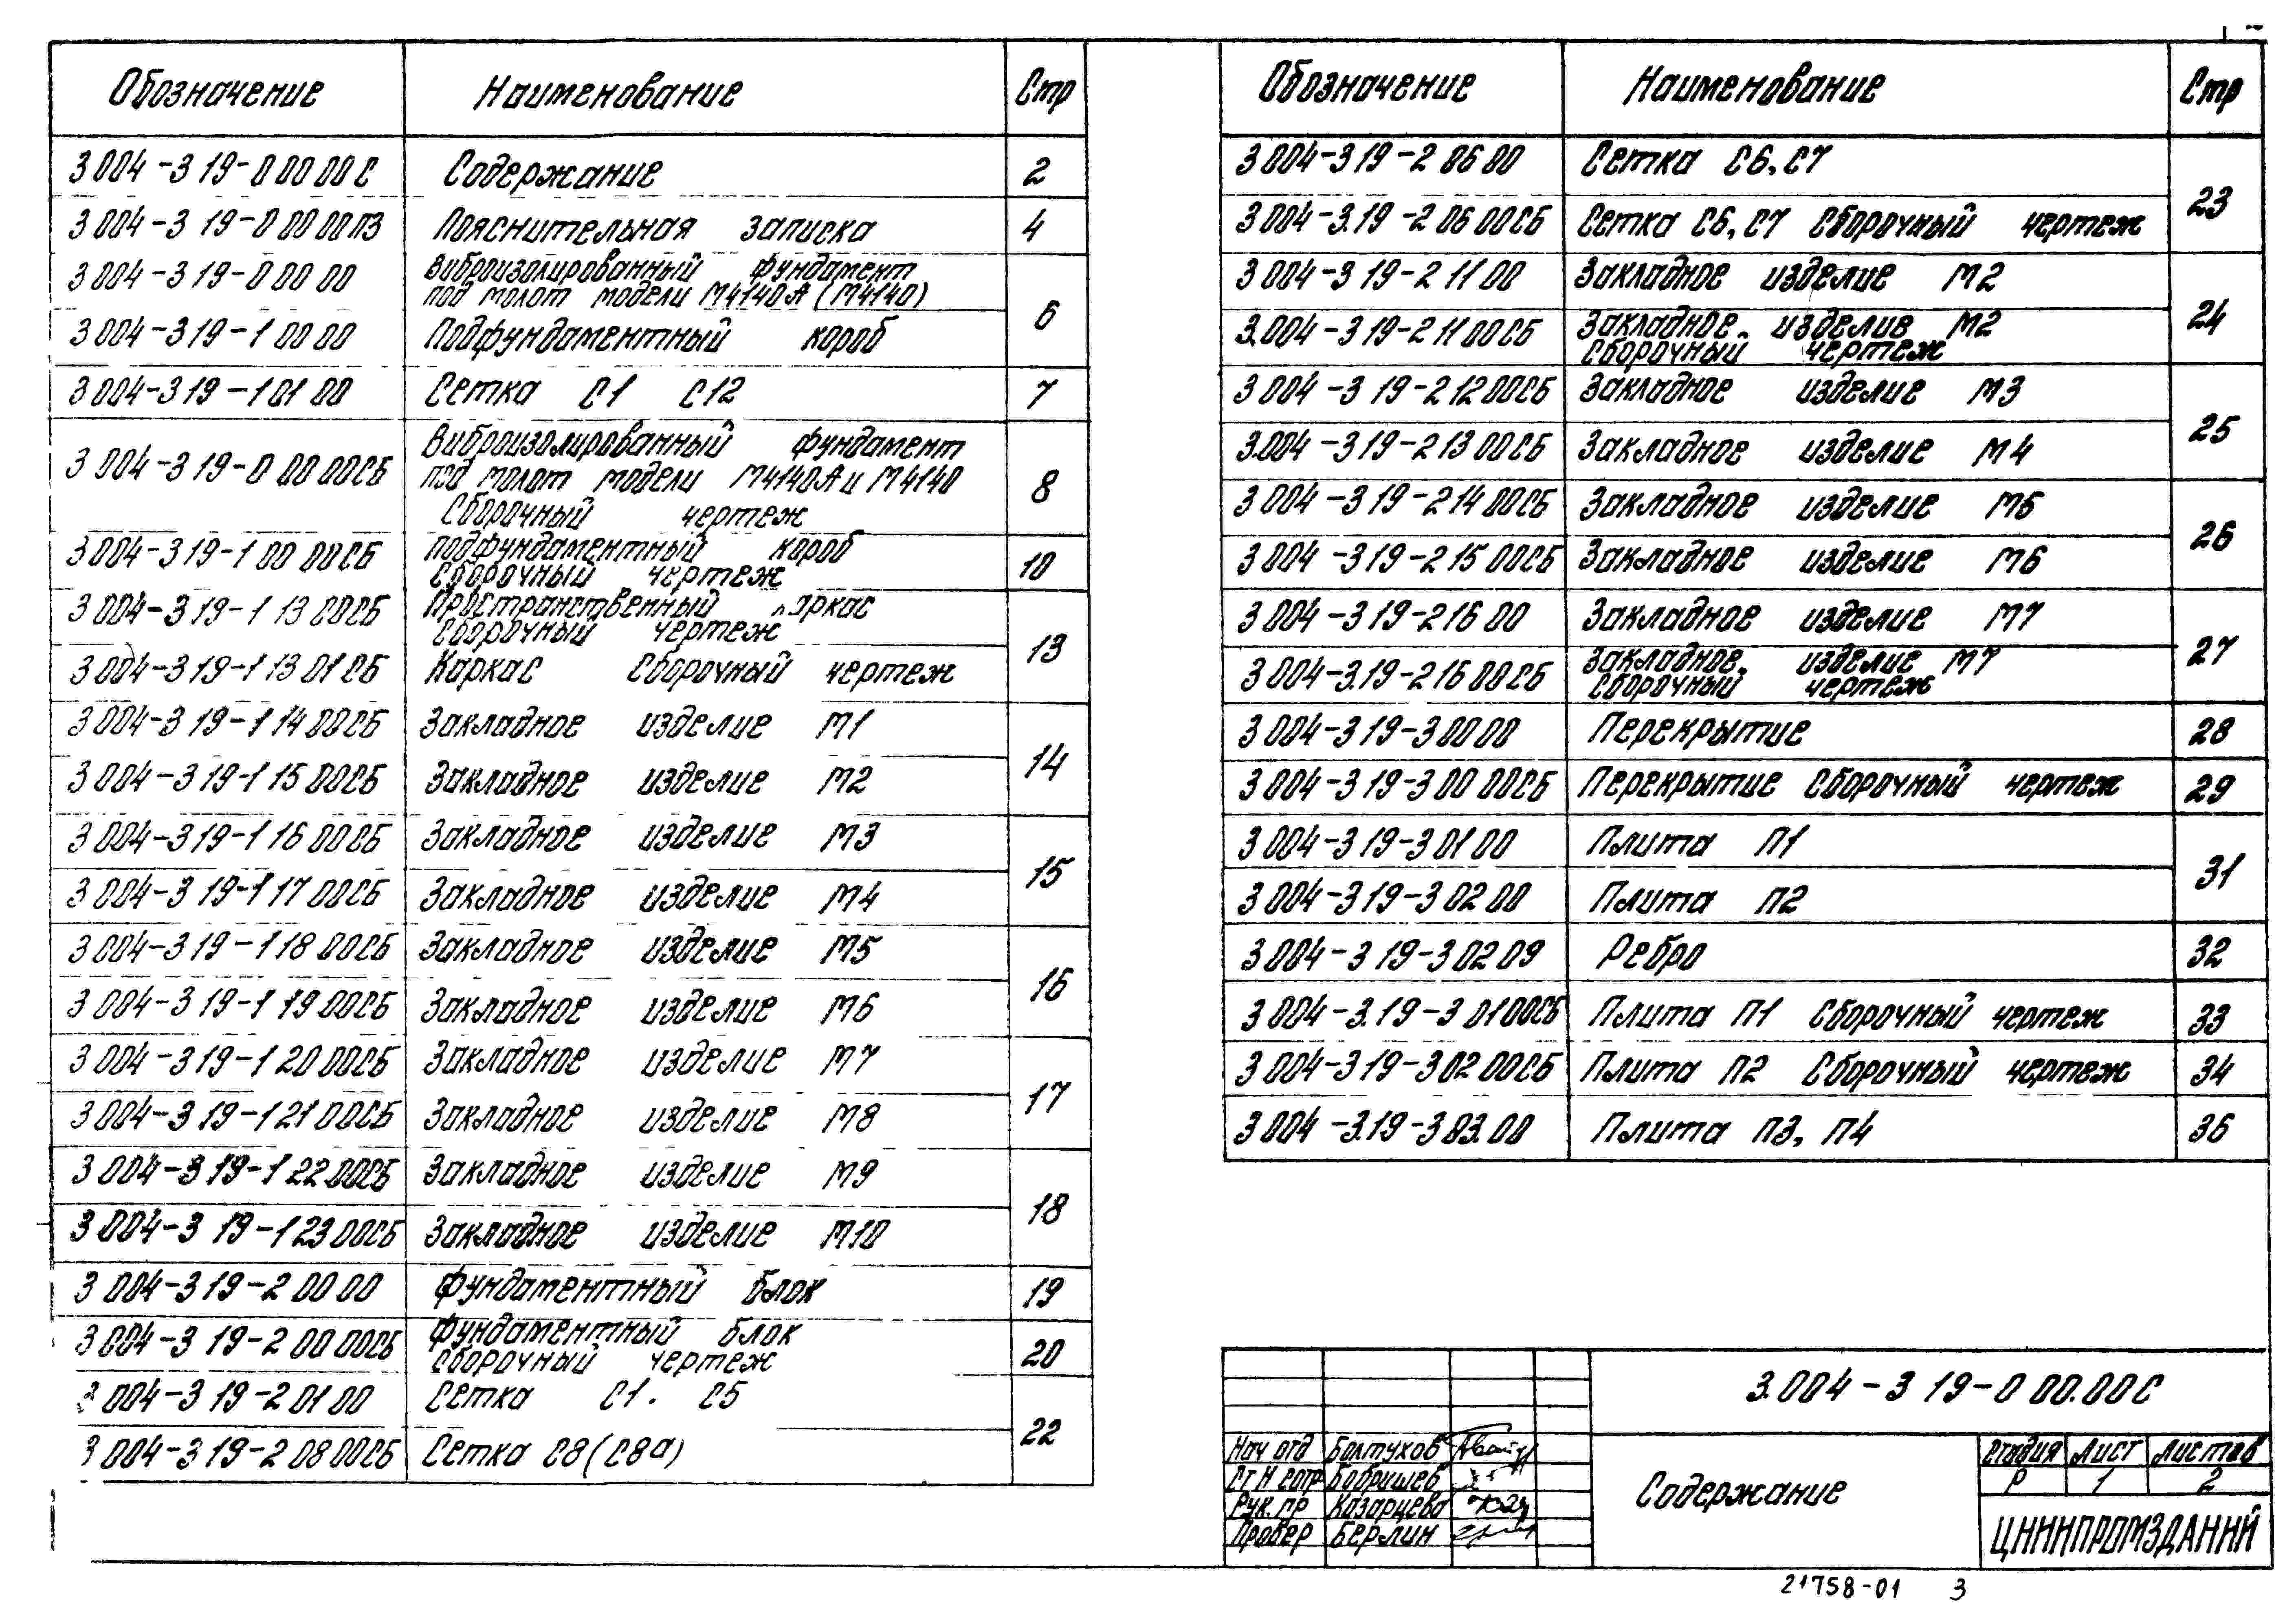 Обозначение Наименование Стр
3 004-3 19-0 00 00 С Содержание 2
3 004-3 19-0 00 00 ПЗ Пояснительная записка 4
3 004-3 19-0 00 00 Виброизолированный фундамент
под молот модели М4140А (М4140)
6
3 004-3 19-1 00 00 Подфундаментный короб
3 004-3 19-1 01 00 Сетка С1 С12 7
Виброизолированный фундамент
3 004-3 19-0 00 00СБ под молот модели М4140А и М4140 8
Сборочный чертеж
3 004-3 19-1 00 00СБ Подфундаментный короб
Сборочный чертеж 10
3 004-3 19-1 13 00СБ Пространственный каркас
Сборочный чертеж
13
3 004-3 19-1 13 01СБ Каркас Сборочный чертеж
3 004-3 19-1 14 00СБ Закладное изделие М1
14
3 004-3 19-1 15 00СБ Закладное изделие М2
3 004-3 19-1 16 00СБ Закладное изделие М3
15
3 004-3 19-1 17 00СБ Закладное изделие М4
3 004-3 19-1 18 00СБ Закладное изделие М5
16
3 004-3 19-1 19 00СБ Закладное изделие М6
3 004-3 19-1 20 00СБ Закладное изделие М7
17
3 004-3 19-1 21 00СБ Закладное изделие М8
3 004-3 19-1 22 00СБ Закладное изделие М9
18
3 004-3 19-1 23 00СБ Закладное изделие М10
3 004-3 19-2 00 00 Фундаментный блок 19
3 004-3 19-2 00 00СБ Фундаментный блок
Сборочный чертеж 20
3 004-3 19-2 01 00 Сетка С1. С5
22
3 004-3 19-2 08 00СБ Сетка С8 (С8а)
Обозначение Наименование Стр
3 004-3 19-2 06 00 Сетка С6, С7
23
3 004-3.19-2 06 00СБ Сетка С6, С7 Сборочный чертеж
3 004-3 19-2 11 00 Закладное изделие М2
24
3.004-3 19-2 11 00СБ Закладное изделие М2
Сборочный чертеж
3 004-3 19-2 12 00СБ Закладное изделие М3
25
3.004-3 19-2 13 00СБ Закладное изделие М4
3 004-3 19-2 14 00СБ Закладное изделие М5
26
3 004-3 19-2 15 00СБ Закладное изделие М6
3 004-3 19-2 16 00 Закладное изделие М7
27
3 004-3.19-2 16 00СБ Закладное изделие М7
Сборочный чертеж
3 004-3 19-3 00 00 Перекрытие 28
3 004-3 19-3 00 00СБ Перекрытие Сборочный чертеж 29
3 004-3 19-3 01 00 Плита П1
31
3 004-3 19-3 02 00 Плита П2
3 004-3 19-3 02 09 Ребро 32
3 004-3.19-3 01 00СБ Плита П1 Сборочный чертеж 33
3 004-3 19-3 02 00СБ Плита П2 Сборочный чертеж 34
3 004-3.19-3 03.00 Плита П3, П4 36
3.004-3 19-0 00.00С
Нач отд Болтухов
Ст Н сотр Бобришев
Рук. пр Казарцева
Провер Берлин
Содержание
Стадия Лист Листов
Р 1 2
ЦНИИПРОМЗДАНИЙ
21758-01 3